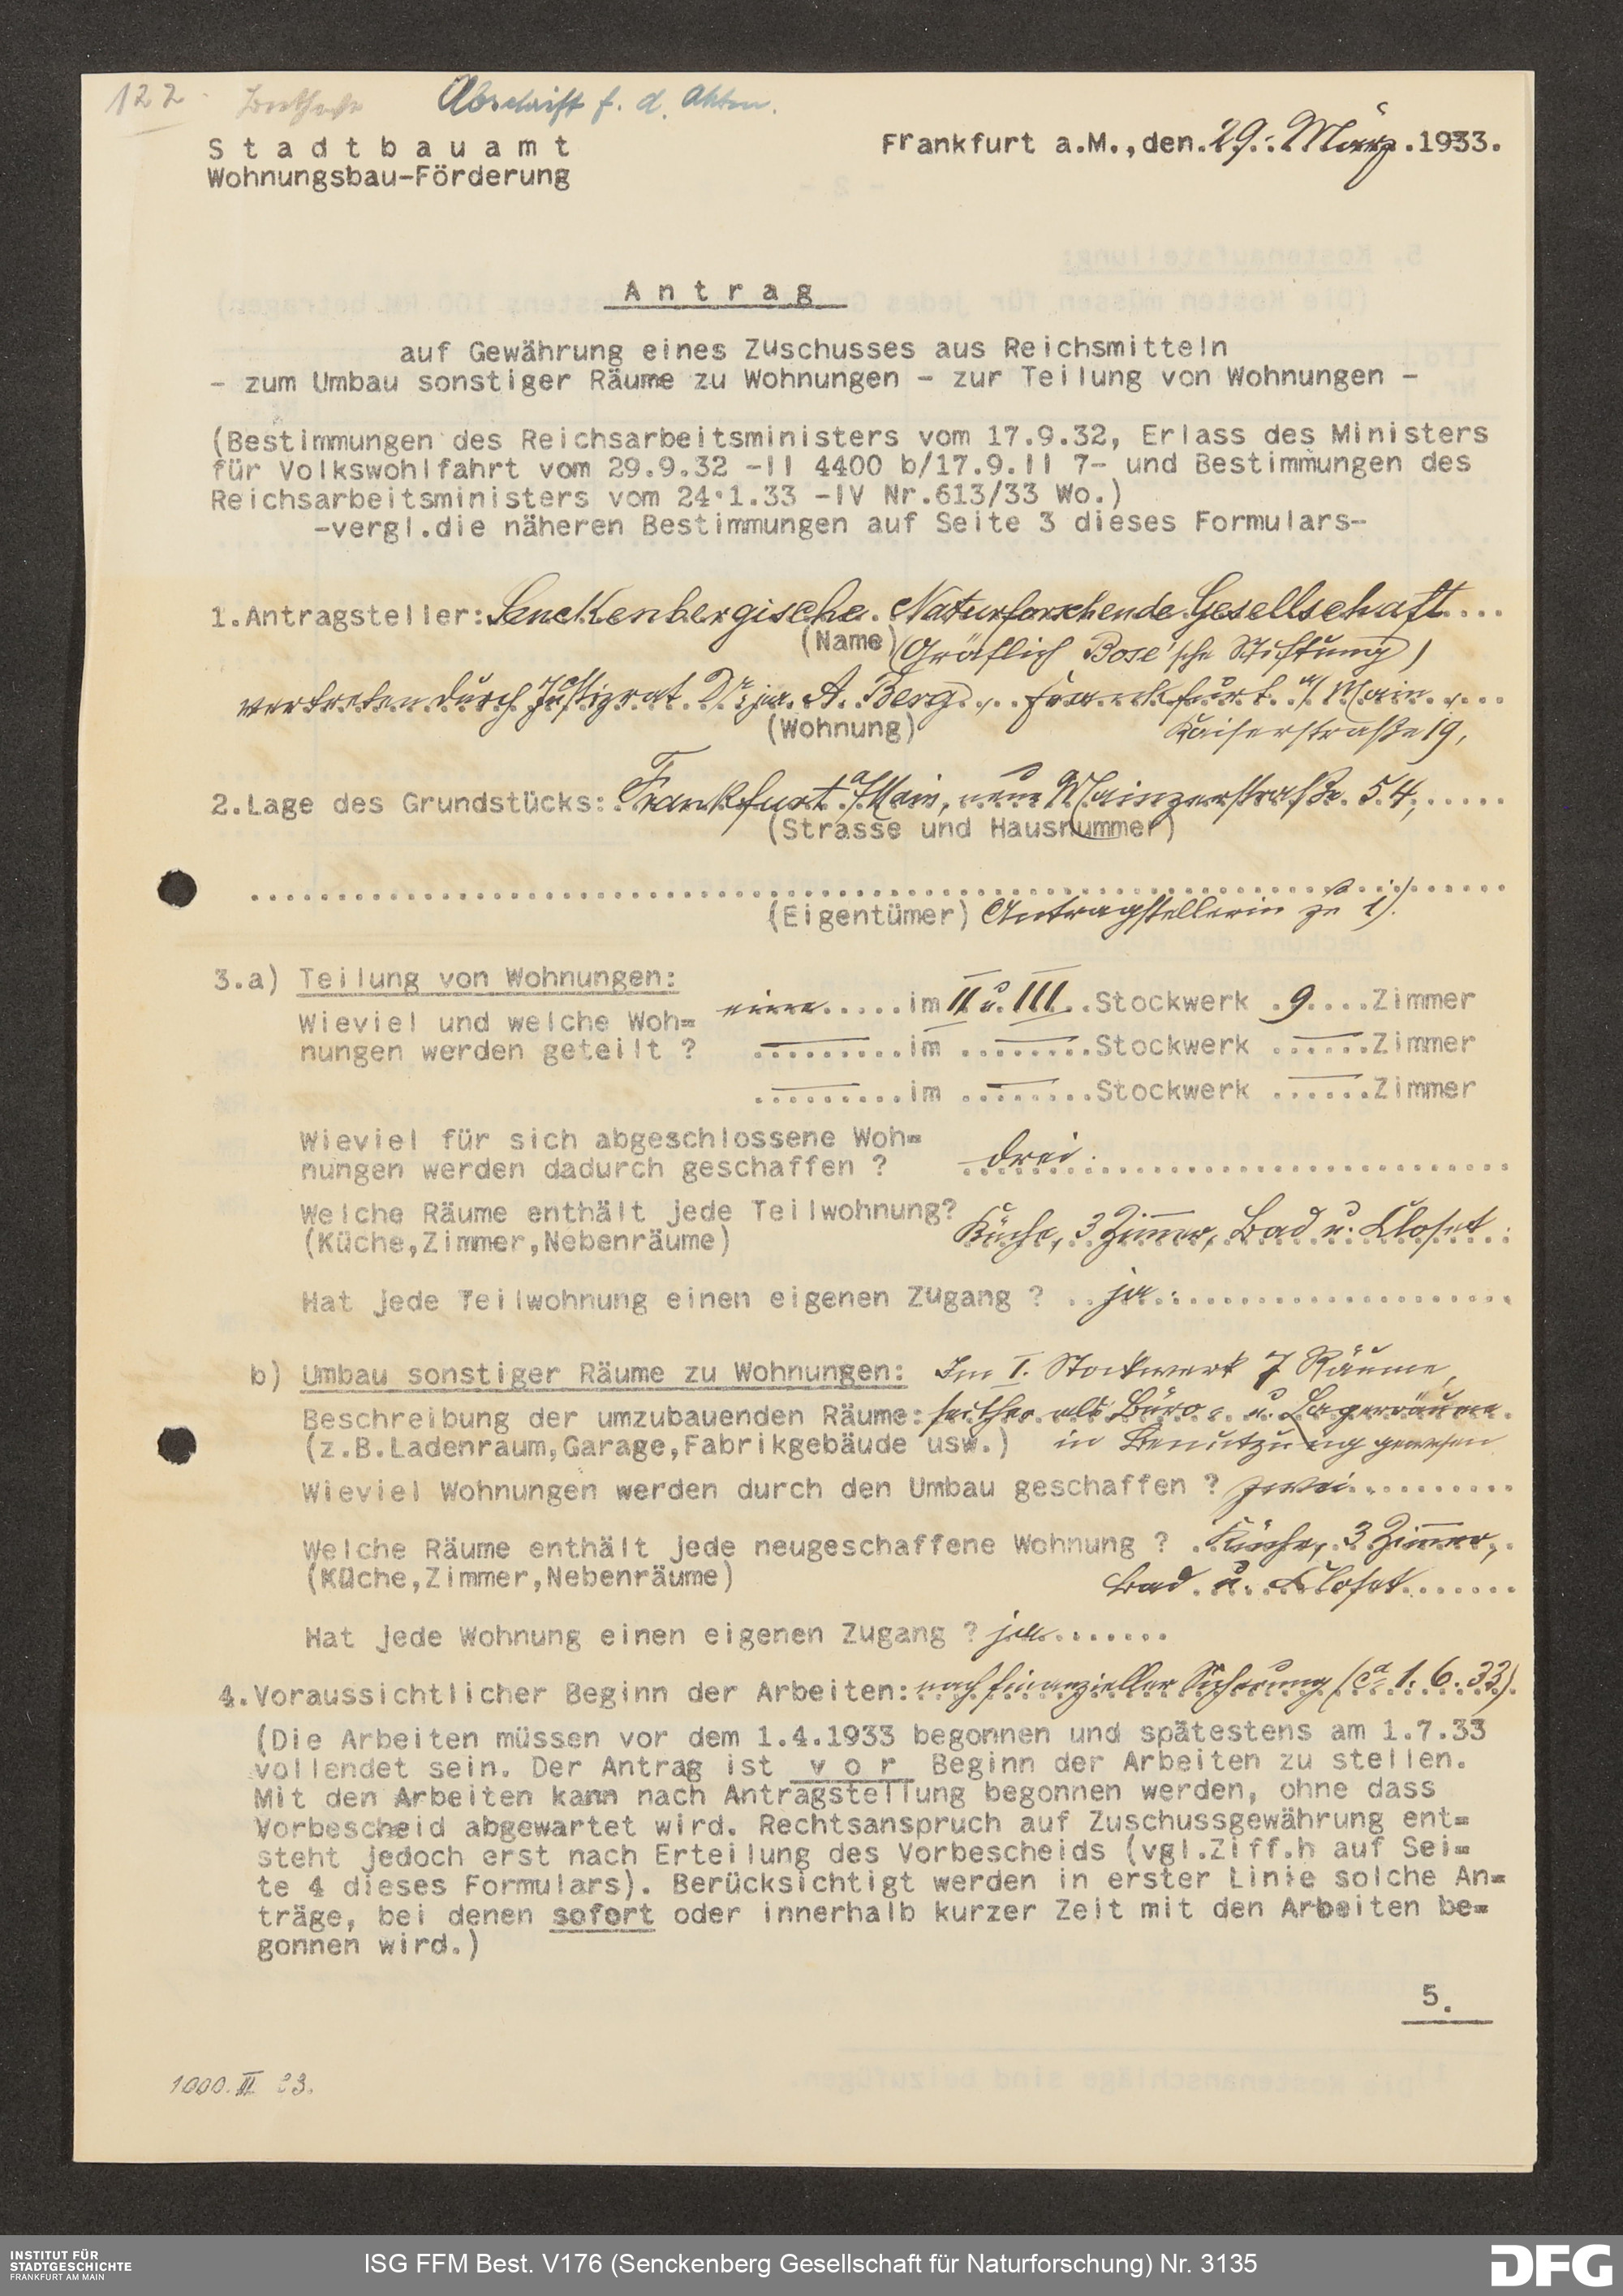 122
Abschrift f. d. Akten.
Stadtbauamt
Wohnungsbau-Förderung
Frankfurt a.M.,den.29. März.1933.
Antrag
auf Gewährung eines Zuschusses aus Reichsmitteln
- zum Umbau sonstiger Räume zu Wohnungen - zur Teilung von Wohnungen -
(Bestimmungen des Reichsarbeitsministers vom 17.9.32, Erlass des Ministers
für Volkswohlfahrt vom 29.9.32 -II 4400 b/17.9.II 7- und Bestimmungen des
Reichsarbeitsministers vom 24.1.33 -IV Nr.613/33 Wo.)
-vergl.die näheren Bestimmungen auf Seite 3 dieses Formulars-
1.Antragsteller: Senckenbergische Naturforschende Gesellschaft....
(Name) (Gräflich Bose'sche Stiftung)
vertreten durch Justizrat Dr. jur. A. Berg, Frankfurt a/Main,...
(Wohnung) Kaiserstraße 19,
2.Lage des Grundstücks: Frankfurt a/Main, neue Mainzerstraße 54,......
(Strasse und Hausnummer)
(Eigentümer) Antragstellerin zu 1).
3.a) Teilung von Wohnungen:
Wieviel und welche Woh=
nungen werden geteilt ?
eine.....im II u. III..Stockwerk .9....Zimmer
.........im ........Stockwerk ......Zimmer
.........im ........Stockwerk ......Zimmer
Wieviel für sich abgeschlossene Woh=
nungen werden dadurch geschaffen ? drei.
Welche Räume enthält jede Teilwohnung?
(Küche,Zimmer,Nebenräume) Küche, 3 Zimmer, Bad u. Closet
Hat jede Teilwohnung einen eigenen Zugang ? ..ja.
b) Umbau sonstiger Räume zu Wohnungen: Im I. Stockwerk 7 Räume,
Beschreibung der umzubauenden Räume: seither als Büro- u. Lagerräume
(z.B.Ladenraum,Garage,Fabrikgebäude usw.) in Benutzung gewesen
Wieviel Wohnungen werden durch den Umbau geschaffen ? zwei..........
Welche Räume enthält jede neugeschaffene Wohnung ? Küche, 3 Zimmer,
(Küche,Zimmer,Nebenräume) Bad u. Closet.......
Hat jede Wohnung einen eigenen Zugang ? ja.......
4.Voraussichtlicher Beginn der Arbeiten: nach finanzieller Sicherung (ca 1.6.33).
(Die Arbeiten müssen vor dem 1.4.1933 begonnen und spätestens am 1.7.33
vollendet sein. Der Antrag ist vor Beginn der Arbeiten zu stellen.
Mit den Arbeiten kann nach Antragstellung begonnen werden, ohne dass
Vorbescheid abgewartet wird. Rechtsanspruch auf Zuschussgewährung ent=
steht jedoch erst nach Erteilung des Vorbescheids (vgl.Ziff.h auf Sei=
te 4 dieses Formulars). Berücksichtigt werden in erster Linie solche An=
träge, bei denen sofort oder innerhalb kurzer Zeit mit den Arbeiten be=
gonnen wird.)
5.
1000. II 33.
INSTITUT FÜR
STADTGESCHICHTE
FRANKFURT AM MAIN
ISG FFM Best. V176 (Senckenberg Gesellschaft für Naturforschung) Nr. 3135
DFG